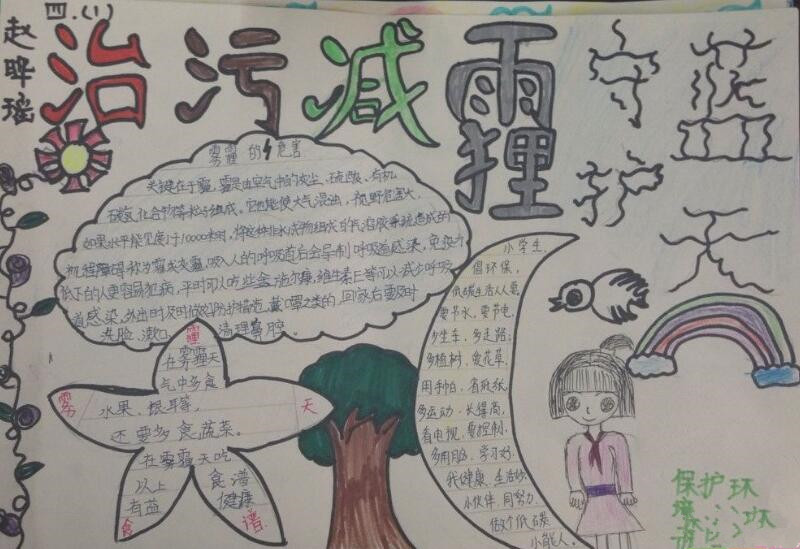 四.(1)
赵晔瑶
治污减霾
守护蓝天
雾霾的危害
关键在于霾,霾是由空气中的灰尘、硫酸、有机
碳氢化合物等粒子组成。它也能使大气混浊,视野
如果水平能见度小于10000米时,将这种非水成物组成的气溶胶系统造成的
视程障碍称为霾或灰霾,吸入人的呼吸道后会导制呼吸道感染,免疫力
低下的人更容易犯病,平时可以吃些
维生素E等可以减少呼吸
道感染,外出时及时做好防护措施,戴口罩之类的,回家后要及时
洗脸、漱口、清理鼻腔。
雾霾天食谱
在雾霾天
气中多食
水果、根耳等,
还要多食蔬菜。
在雾霾天吃
以上食谱
有益健康
小学生,
倡环保,
低碳生活人人要。
要节水,要节电,
少坐车,多走路;
多植树,爱花草,
用手帕,省纸纸,
多运动,长得高,
看电视,要控制,
多用脑,学习好,
我健康,生活妙,
小伙伴,同努力,
做个低碳
小能人。
保护环
境